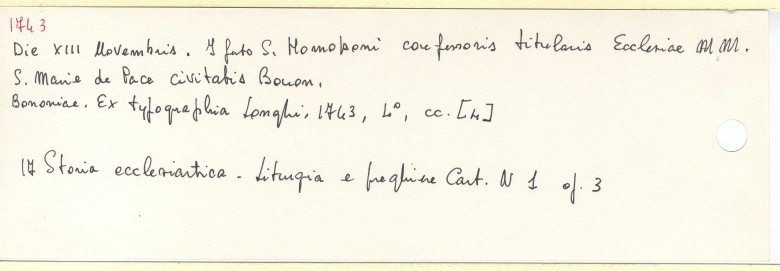 1743
Die XIII Novembris. I festo S. Homoboni confessoris titularis Ecclesiae MM.
S. Marie de Pace civitatis Bonon.
Bononiae. Ex typographia Longhi, 1743, 4°, cc. [4]
17 Storia ecclesiastica - Liturgia e preghiere Cart. N 1 of. 3